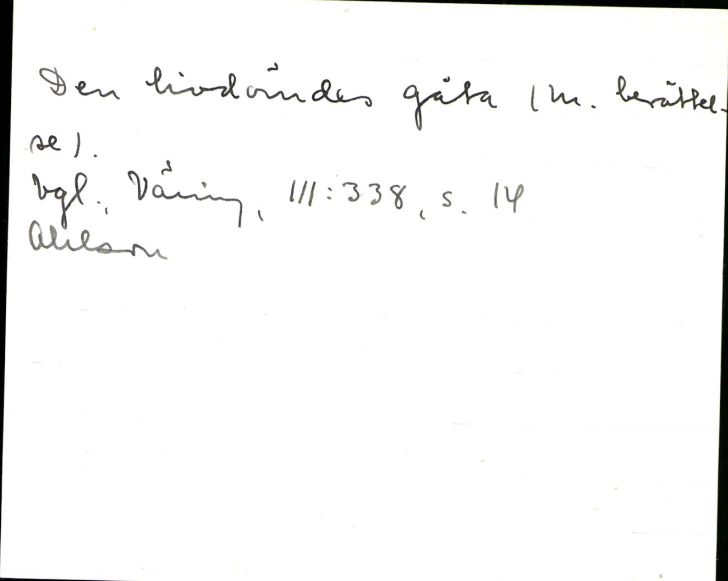 Den livdömdes gåta (m. berättel-
se).
Vgl., Våning, III:338, s. 14
Ahlson